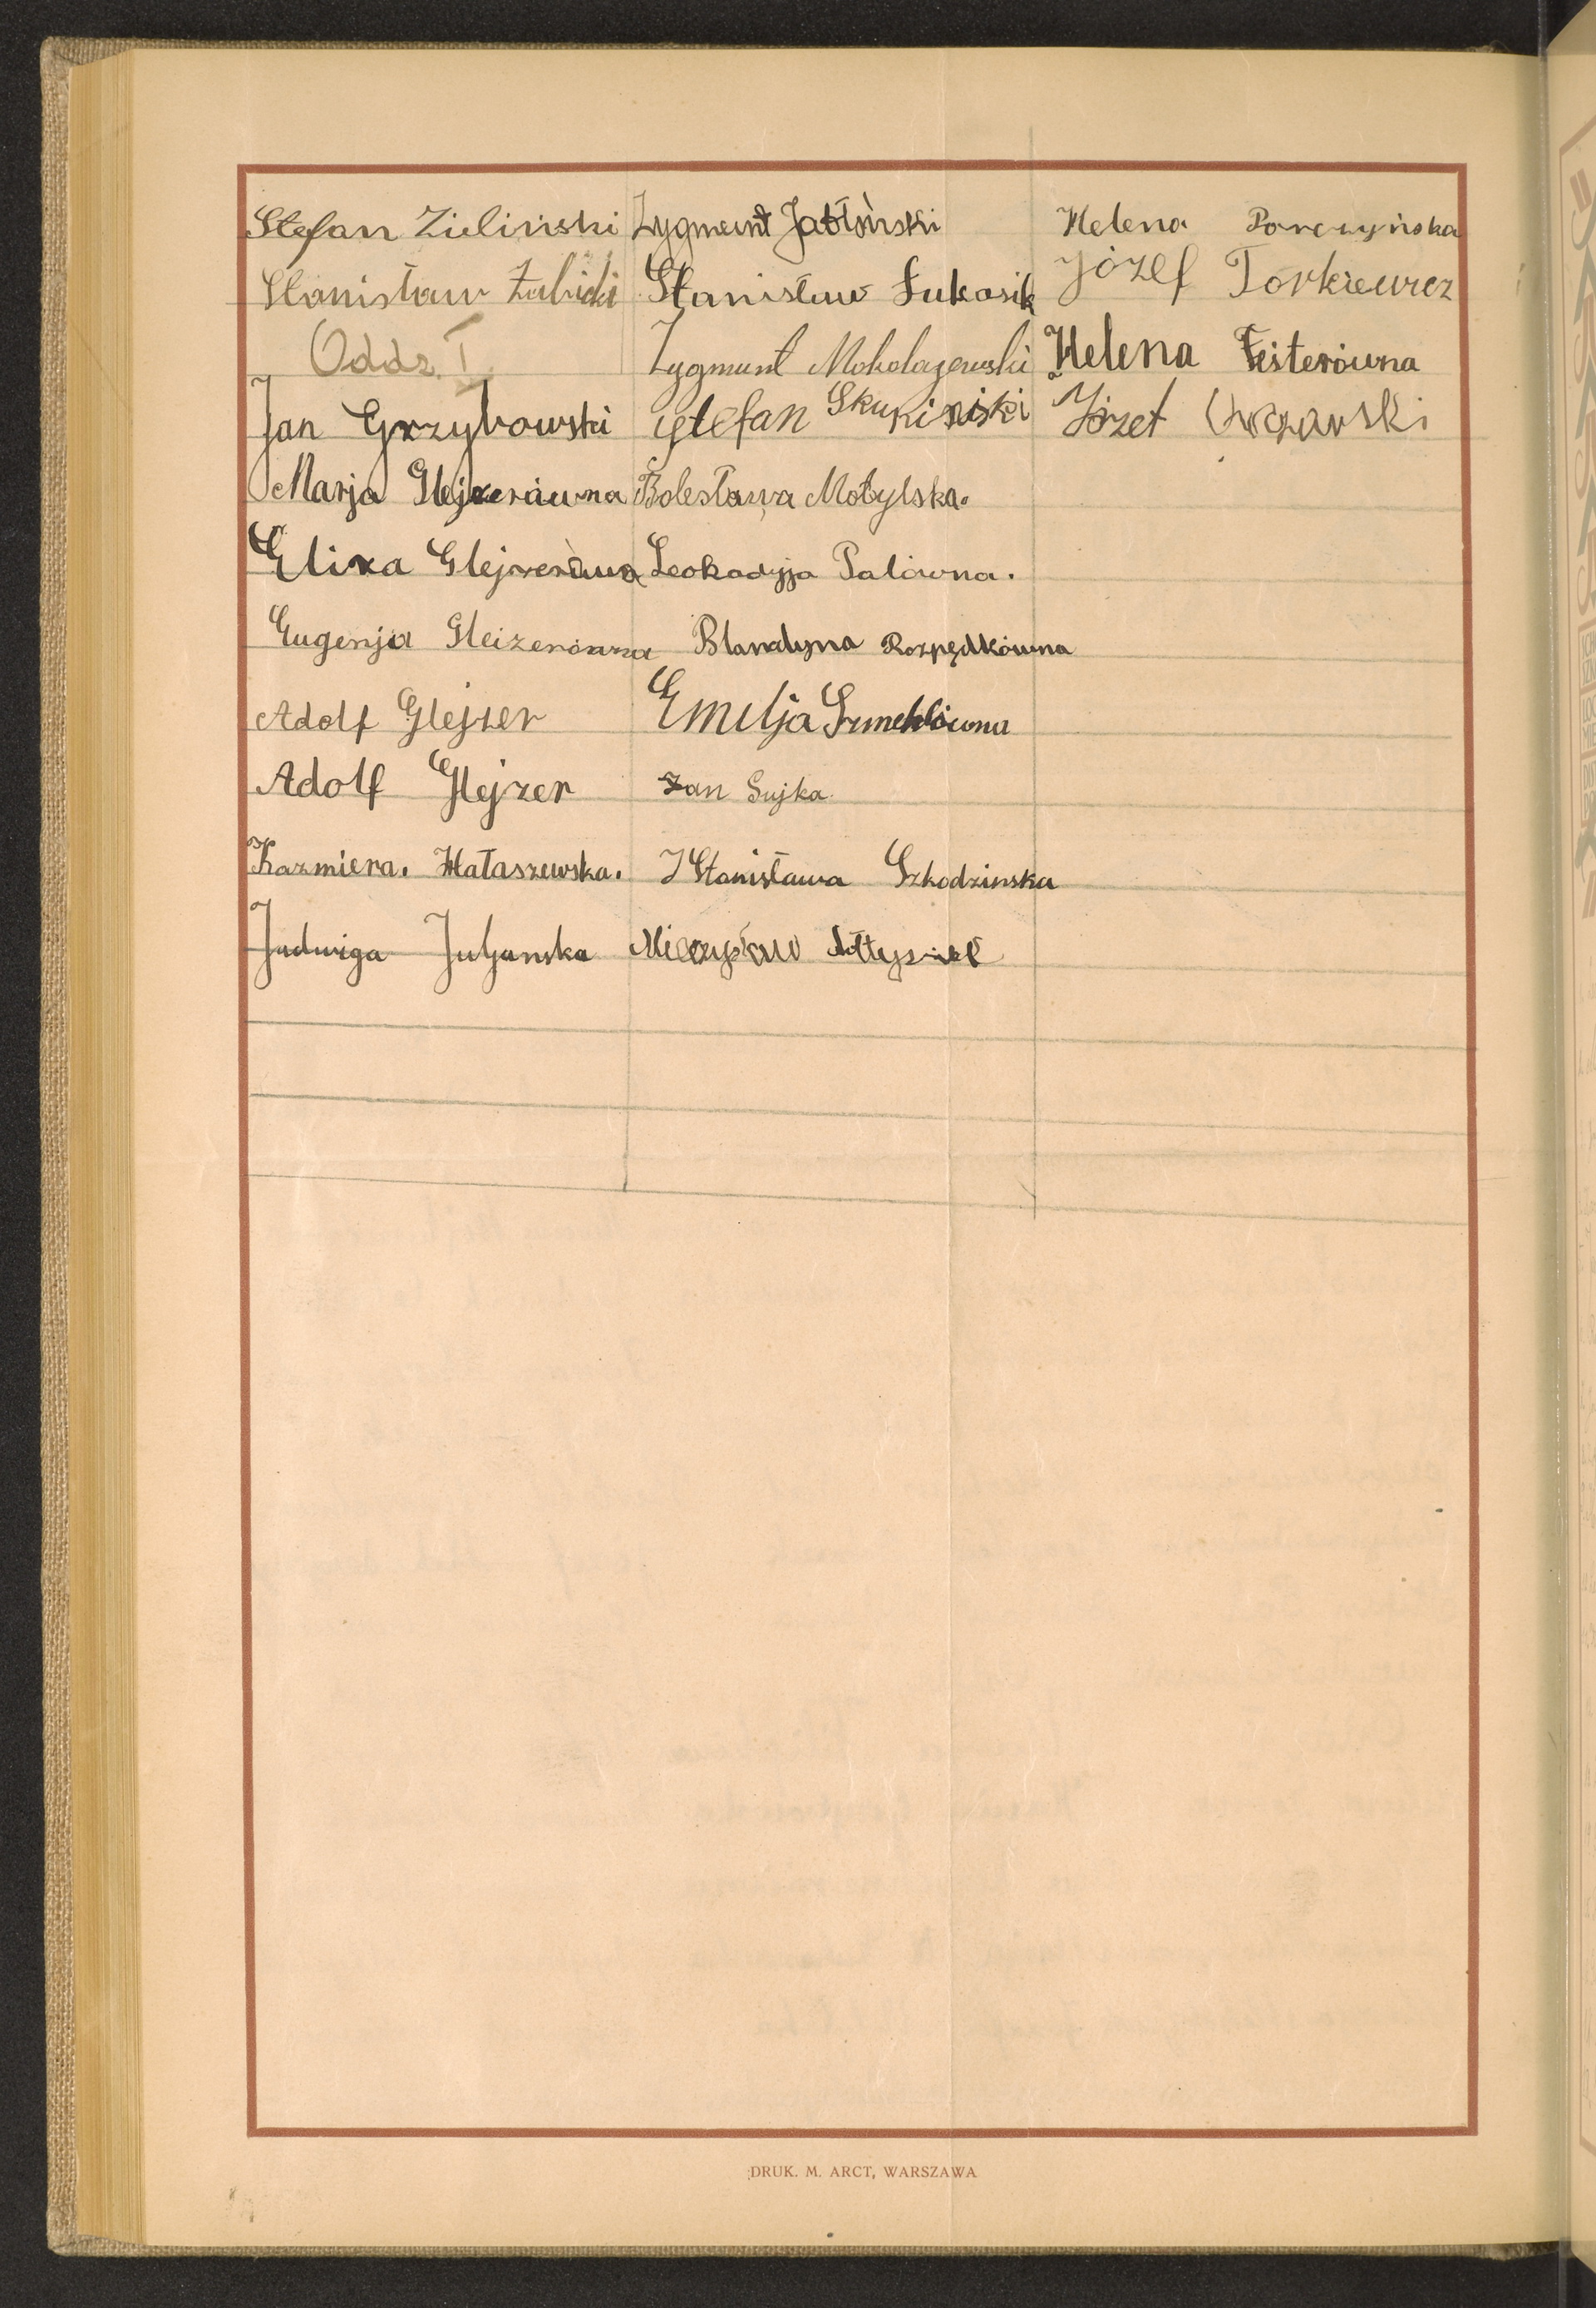 Stefan Zieliński
Stanisław Żabicki
Oddz. I.
Jan Grzybowski
Marja Glejzerówna
Eliza Glejzerówna
Eugenja Gleizerówna
Adolf Glejzer
Adolf Glejzer
Kazmiera. Mataszewska.
Jadwiga Juljanska
Zygmunt Jabłoński
Stanisław Łukasik
Zygmunt
Stefan Skupiński
Bolesława Motylska.
Leokadyja Palówna.
Blandyna Rozpędkówna
Emilja
Jan Sujka
Stanisława Szkodzinska
Helena Porczyńska
Józef Torkiewicz
Helena Festerówna
Józef
DRUK. M. ARCT, WARSZAWA